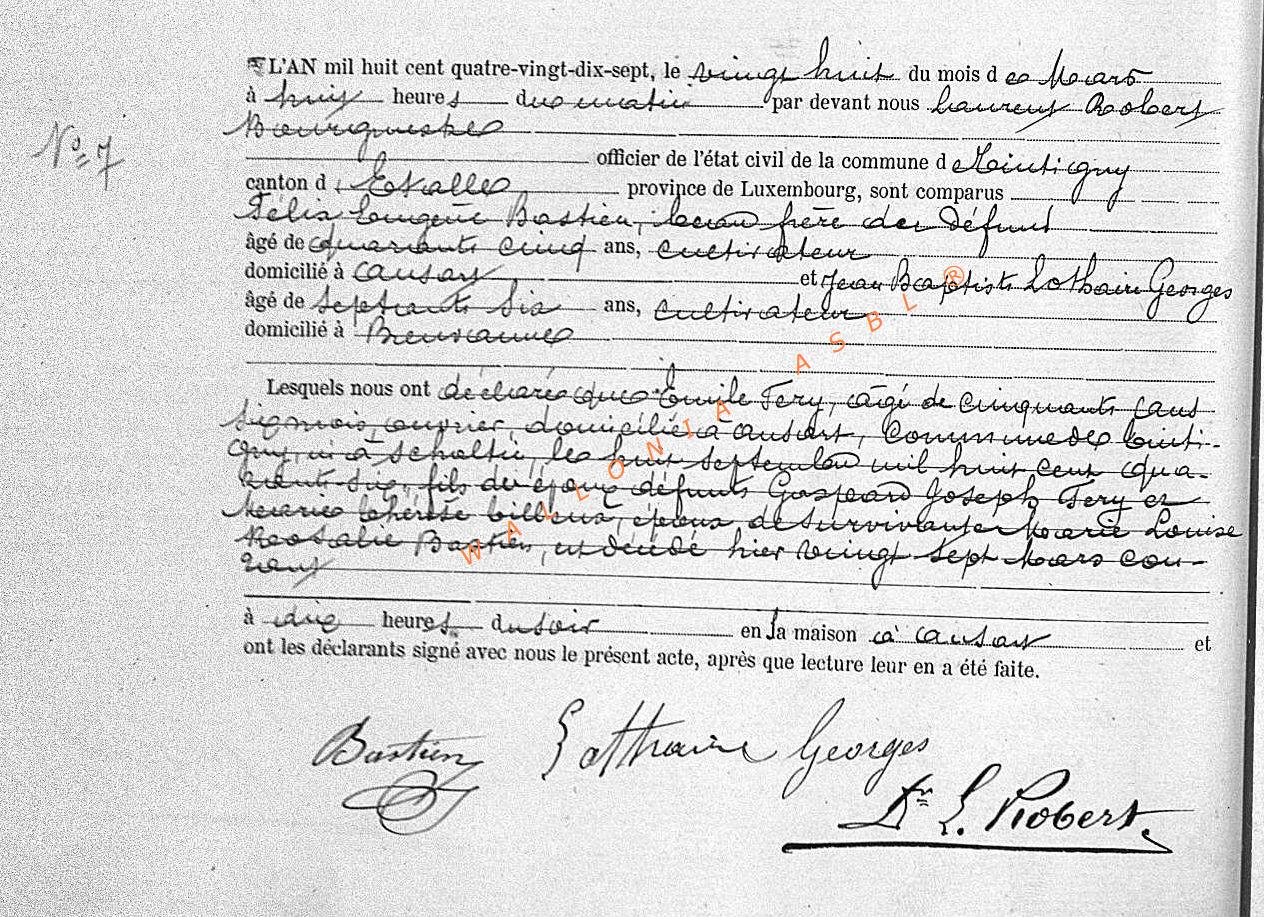 L'AN mil huit cent quatre-vingt-dix-sept, le vingt huit du mois d e Mars
à huit heures du matin par devant nous Laurent Robert
Bourgmestre
N° 7
officier de l'état civil de la commune d e Tintigny
canton d' Etalle province de Luxembourg, sont comparus
Félix Eugène Bastien, beau frère du défunt
âgé de quarante cinq ans, cultivateur
domicilié à ansart et Jean Baptiste Lothaire Georges
âgé de septante six ans, cultivateur
domicilié à Breuvanne
Lesquels nous ont déclaré que Emile Fery, âgé de cinquante ans
six mois, ouvrier domicilié à ansart, Commune de Tinti-
gny, né à le huit Septembre mil huit cent qua-
rante-six, fils de époux défunts Gaspard Joseph Fery et
Marie thérèse époux de survivante Marie Louise
Rosalie Bastien, est décédé hier vingt sept Mars cou-
rant
à dix heures du soir en la maison à ansart et
ont les déclarants signé avec nous le présent acte, après que lecture leur en a été faite.
Bastien Lothaire Georges
Dr L. Robert.
WALLONIA ASBL ®